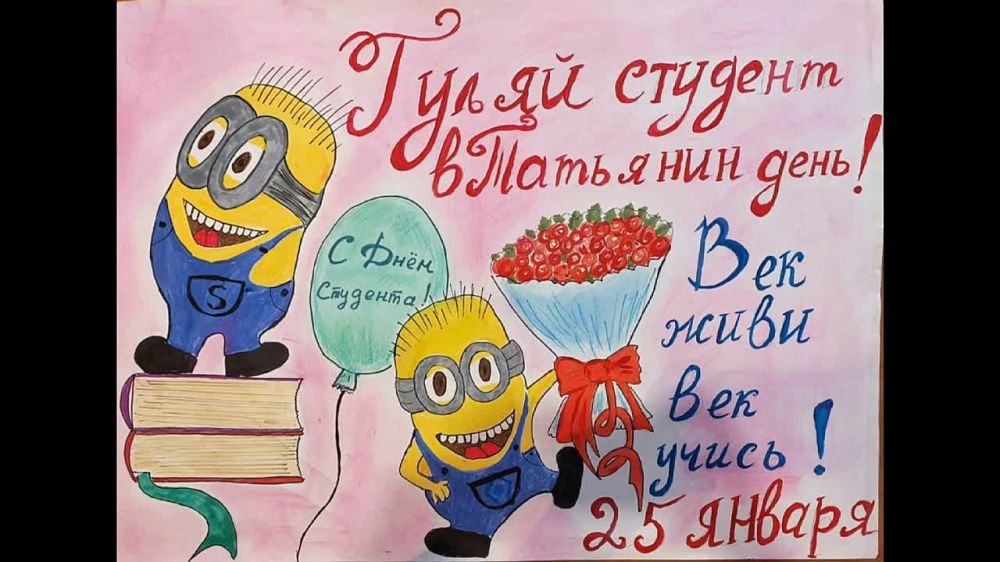 Гуляй студент
в Татьянин день!
С Днём
Студента!
Век
живи
век
учись!
25 января
S